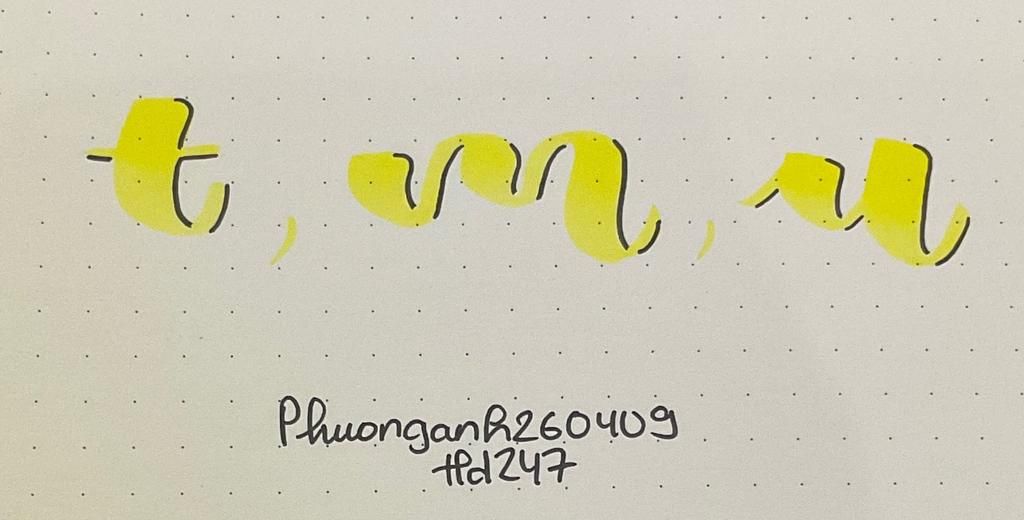 t, m, u
Phuonganh260409
tfd247